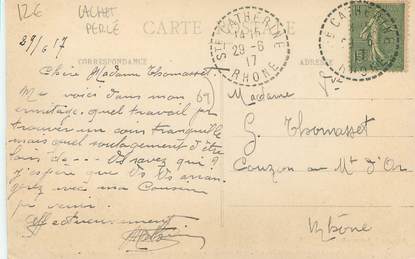 12€ CACHET PERLÉ
CARTE
29/6 17
CORRESPONDANCE
ADRESSE
STE CATHERINE
14-15
29-6
17
RHONE
STE CATHERINE
17
Chère Madame Thomasset
Me voici dans mon
ermitage. quel travail pr
trouver un coin tranquille
mais quel soulagement d'être
loin de --- Vs savez qui ?
J'espère que Vs Vs arran-
gerez avec ma Cousine
pr venir.
affectueusement
69
Madame
G. Thomasset
Couzon au Mt d'Or
Rhône